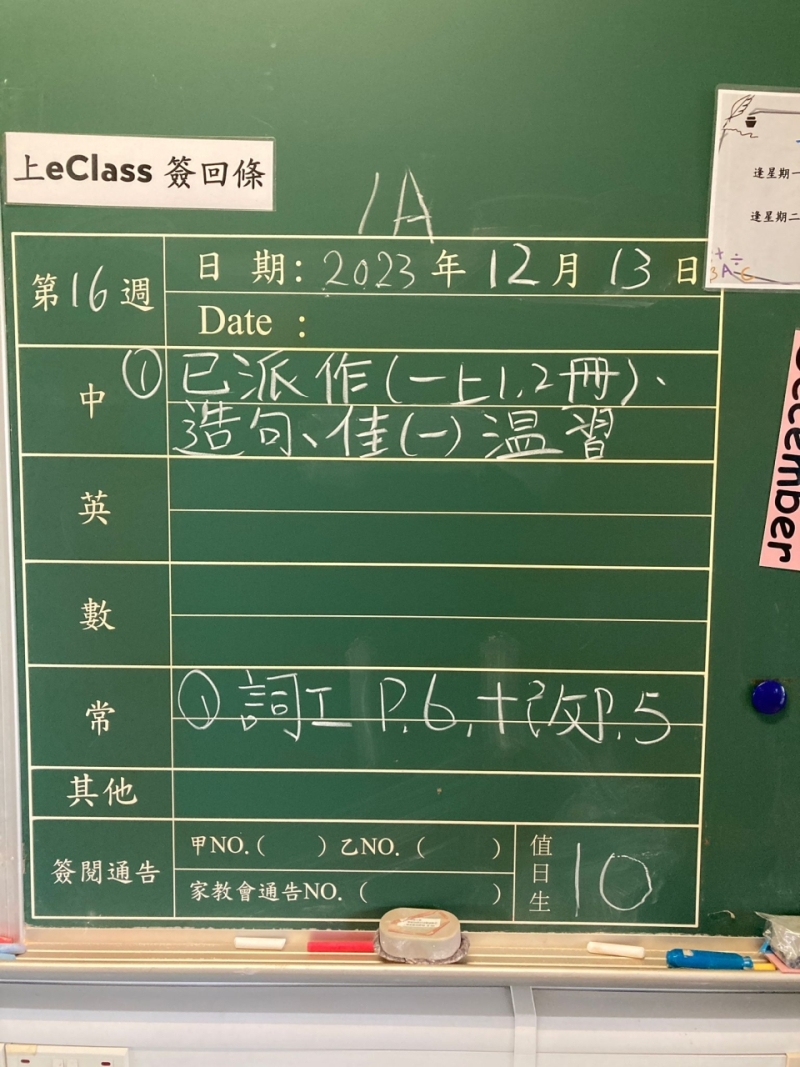 上eClass 簽回條
1A
逢星期一
逢星期二
第16週
日 期: 2023 年 12 月 13 日
Date :
中
① 已派作(一上1.2冊)、
造句、佳(一)温習
英
數
常
① 詞工 P.6, +改P.5
其他
簽閱通告
甲NO.( ) 乙NO. ( )
家教會通告NO. ( )
值日生
10
December